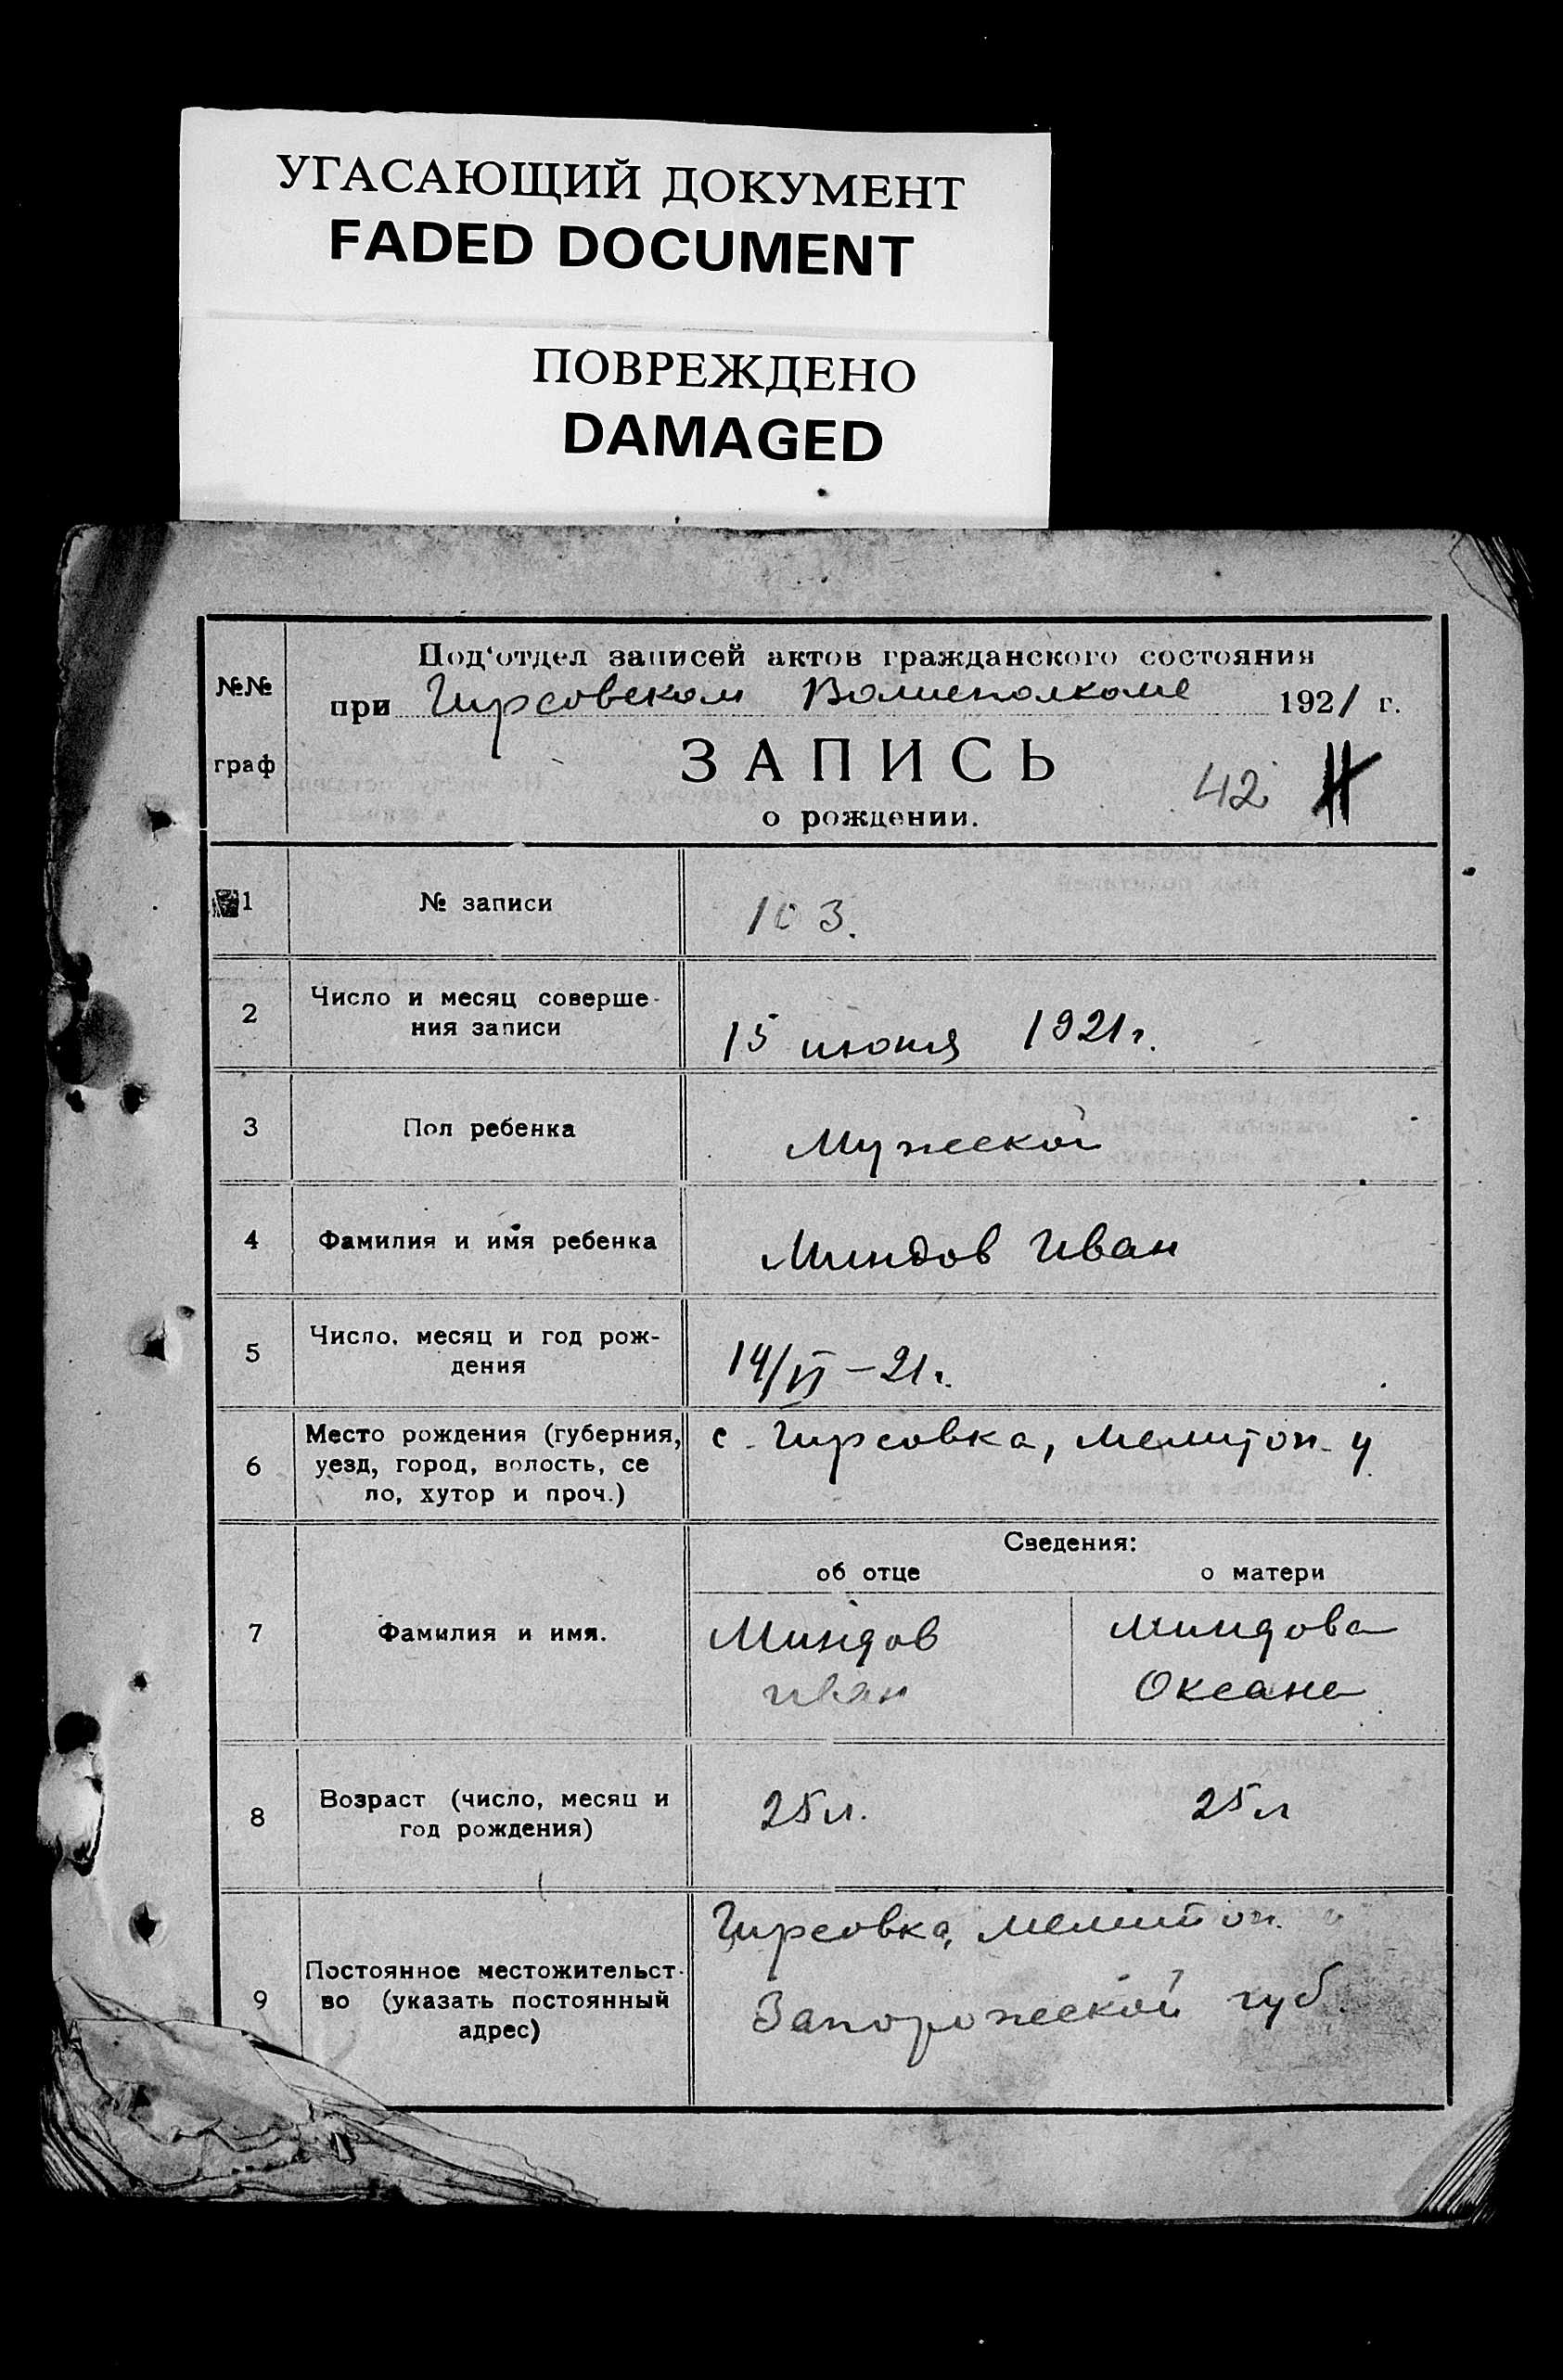 УГАСАЮЩИЙ ДОКУМЕНТ
FADED DOCUMENT
ПОВРЕЖДЕНО
DAMAGED
№№
граф
Под‘отдел записей актов гражданского состояния
при Гирсовском Волисполкоме 1921 г.
ЗАПИСЬ
42
о рождении.
1 № записи 103.
2 Число и месяц соверше-
ния записи
15 июня 1921 г.
3 Пол ребенка Мужской
4 Фамилия и имя ребенка Миндов Иван
5 Число, месяц и год рож-
дения
14/VI – 21 г.
6 Место рождения (губерния,
уезд, город, волость, се
ло, хутор и проч.)
с. Гирсовка, Мелитоп. у
Сведения:
об отце о матери
7 Фамилия и имя.
Миндов
Иван
Миндова
Оксана
8 Возраст (число, месяц и
год рождения)
25 л. 25 л
9 Постоянное местожительст-
во (указать постоянный
адрес)
Гирсовка, Мелитоп.
Запорожской губ.